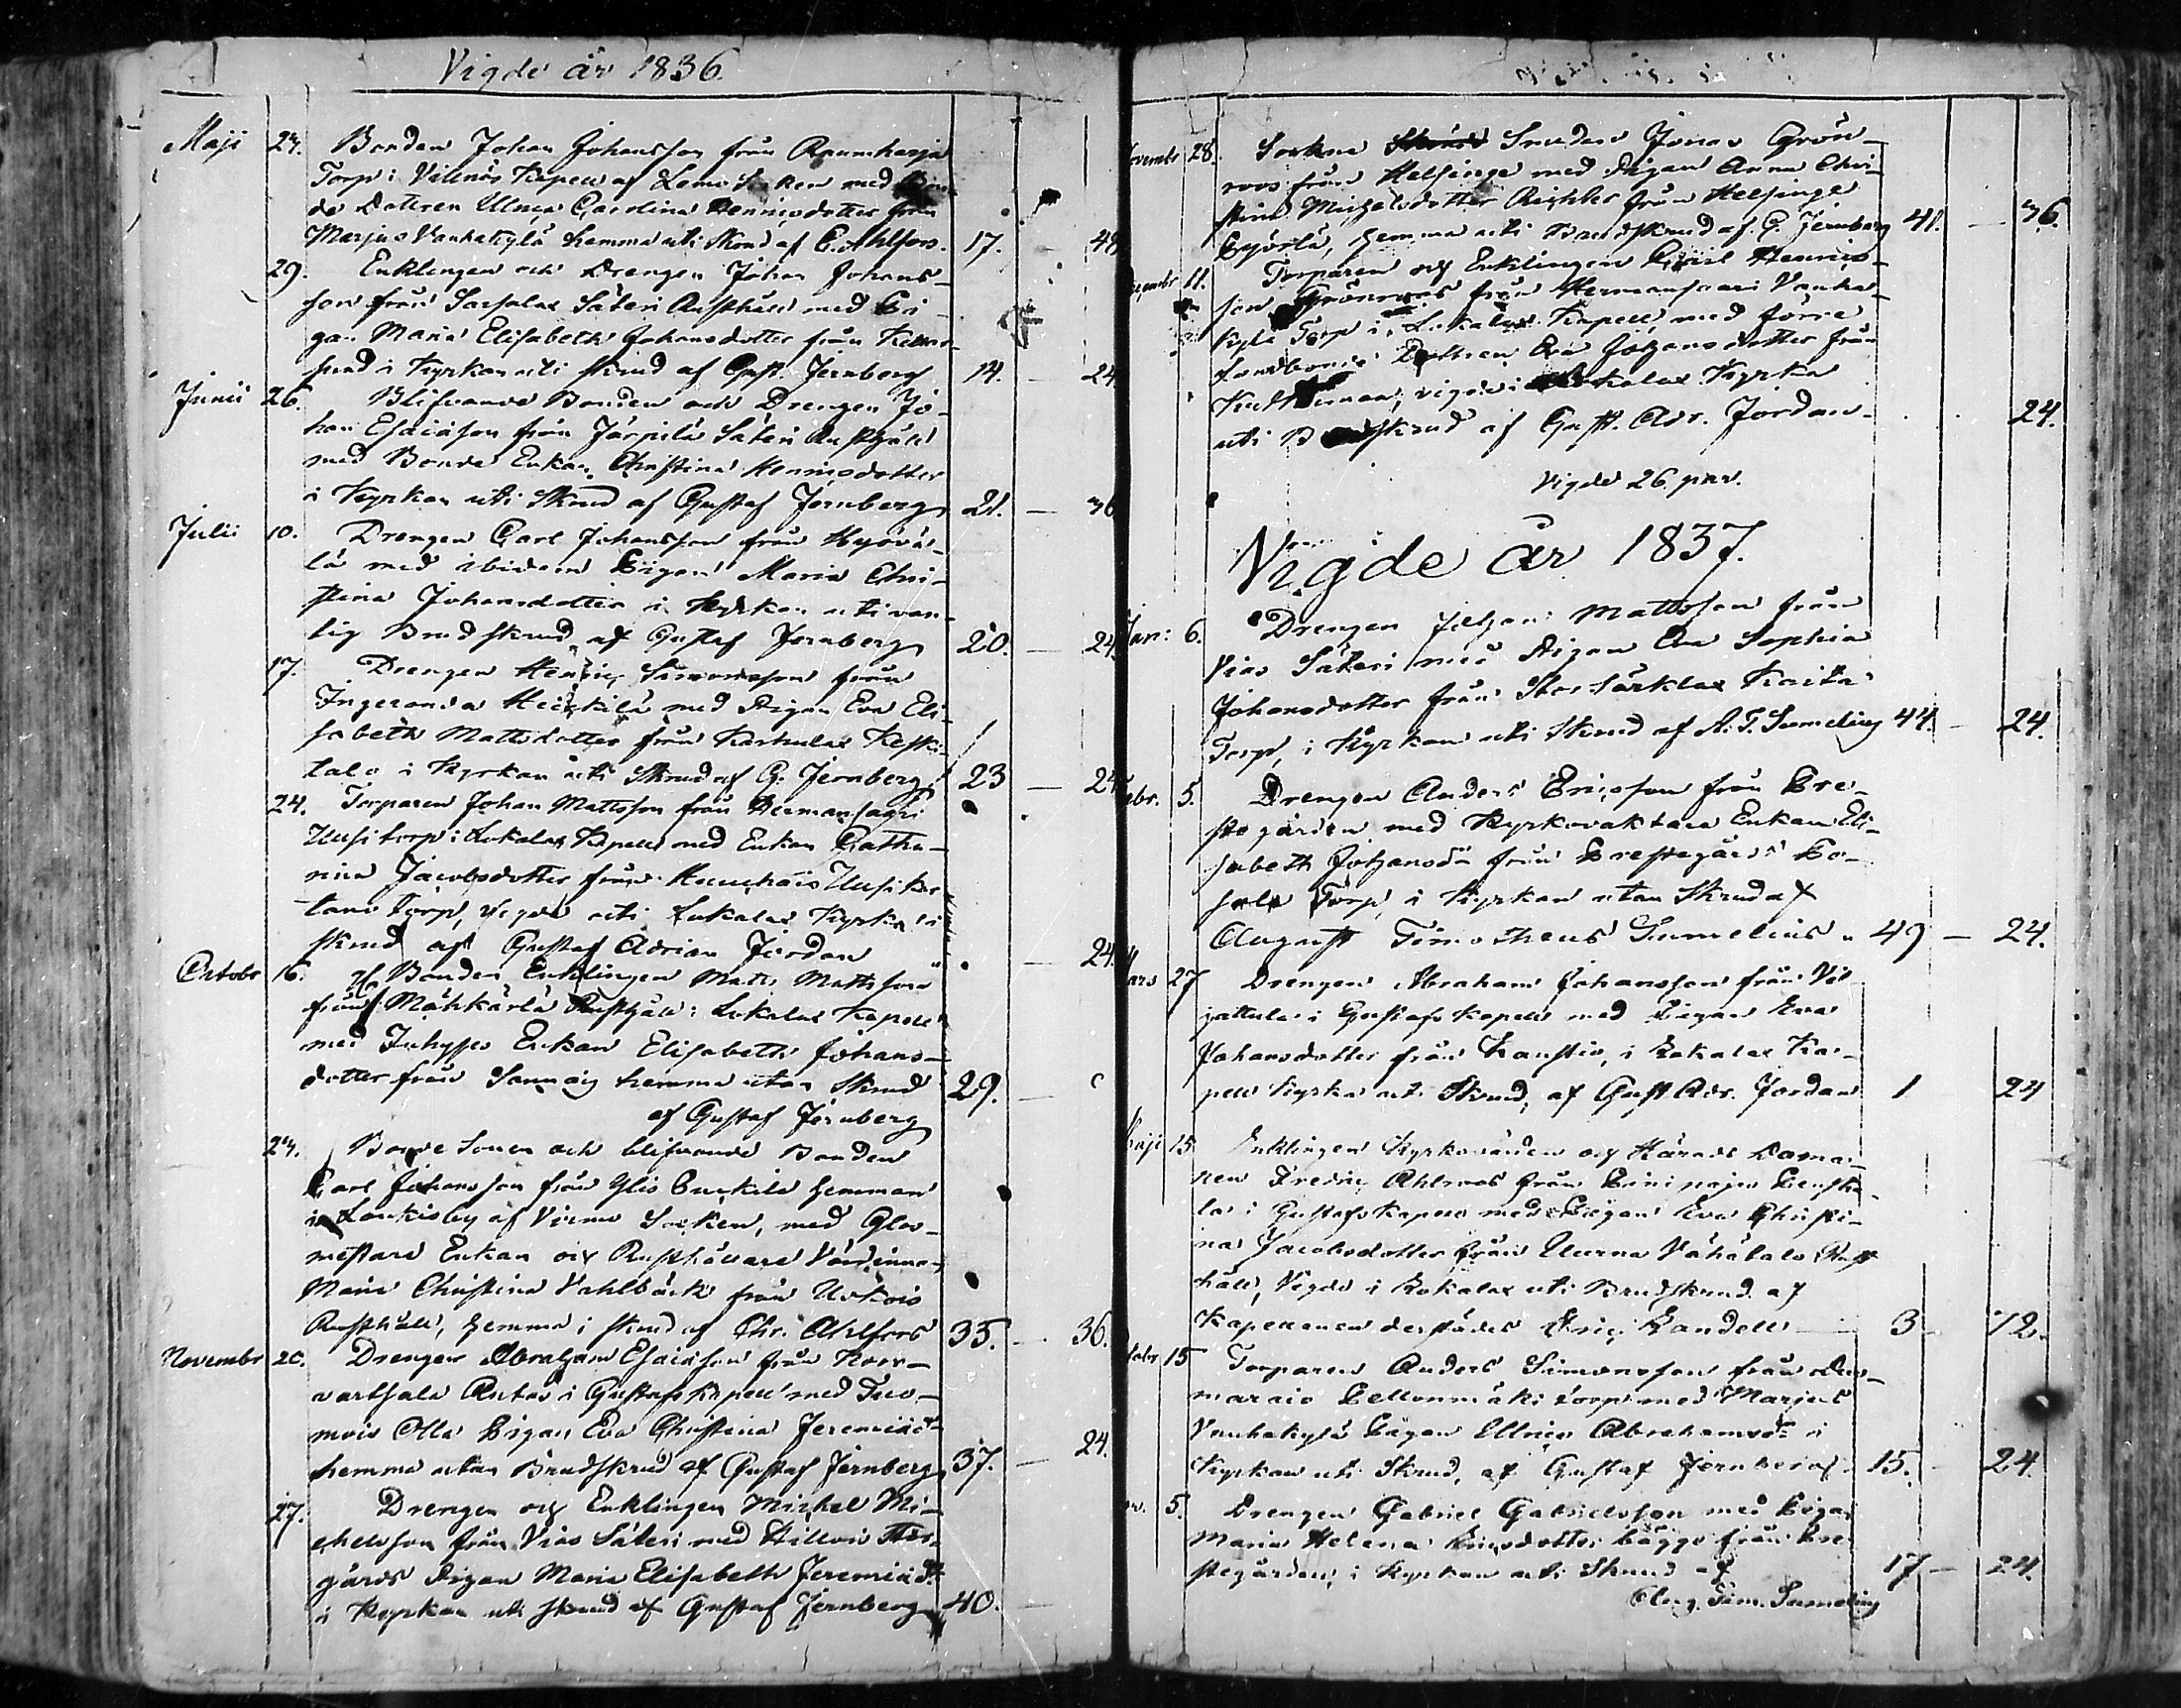 Vigde år 1836.
Maji 24. Bonden Johan Johansson från Raumkarja
Torp i Villnäs Kapell af Lemo Socken med Bon-
de Dottren Ulrica Carolina Henricsdotter från
Marjus Vanhakylä hemma uti Skrud af C. Ahlfors. 17. 48
29. Enklingen och Drengen Johan Johans-
son från Säteri Rusthåll med Pi-
gan Maria Elisabeth Johansdotter från
sund i Kyrkan uti skrud af Gust. Jernberg 14. — 24
Junii 26. Blifvande Bonden och Drengen Jo-
han Esaiason från Järpilä Säteri Rusthåll
med Bonde Enkan Christina Henricsdotter
i Kyrkan uti Skrud af Gustaf Jernberg 21. — 36
Julii 10. Drengen Carl Johansson från Hyrvä-
lä med ibidem Pigan Maria Chri-
stina Johansdotter i Kyrkan uti van-
lig Brudskrud af Gustaf Jernberg 20. — 24.
17. Drengen Henric Simonsson från
Ingeranda Heickilä med Pigan Eva Eli-
sabeth Mattsdotter från Karhulax Keski-
talo i Kyrkan uti Skrud af G. Jernberg 23 — 24
24. Torparen Johan Mattsson från Hermansaari
Uusitorp i Lokalax Kapell med Enkan Catha-
rina Jacobsdotter från Uusikar-
tano Torp, vigde uti Lokalax Kyrka i
skrud af Gustaf Adrian Jordan — 24.
Octobr 16. Bonden Enklingen Matts Mattsson
från Mähkärlä Rusthåll i Lokalax Kapell
med Inhyses Enkan Elisabeth Johans-
dotter från hemma utan Skrud 29. —
af Gustaf Jernberg
24. Bonde Sonen och blifvande Bonden
Carl Johansson från Ylis hemman
i Loukisby af Virmo Socken, med Glas-
mästare Enkan och Rusthållare Värdinnan
Maria Christina Vahlbäck från
Rusthåll, hemma i skrud af Chr. Ahlfors 35. — 36.
Novembr 20. Drengen Abraham Esaiason från
Antas i Gustafs Kapell med Tuo-
mois Olla Pigan Eva Christina Jeremiäd:r
hemma utan Brudskrud af Gustaf Jernberg 37. — 24.
27. Drengen och Enklingen Michel Mi-
chelsson från Vias Säteri med Hillois Her-
gårds Pigan Maria Elisabeth Jeremiäd:r
i Kyrkan uti skrud af Gustaf Jernberg 40. —
Novembr 28. Sockne Smeden Jonas Grön-
roos från Helsinge med Pigan Anna Chri-
stina Michelsdotter Richter från Helsinge
hemma uti Brudskrud af G. Jernberg 41. — 36.
Decembr 11. Torparen och Enklingen Carl Henrics-
son Grönroos från Hermansaari Vanha-
kylä Torp i Lokalax Kapell, med förre
Landbonde Dottren Eva Johansdotter från
vigde i Lokalax Kyrka
uti Brudskrud af Gust. Adr. Jordan 24.
Vigde 26 par.
Vigde år 1837.
Jan: 6. Drengen Johan Mattsson från
Vias Säteri med Pigan Eva Sophia
Johansdotter från Stor Särklax Raita
Torp, i Kyrkan uti Skrud af A. T. Sumelius 44. — 24.
Febr. 5. Drengen Anders Ericsson från Pre-
stgården med Kyrkovaktare Enkan Eli-
sabeth Johansdr från Prestegårds
Torp i Kyrkan utan Skrud af
August Timotheus Sumelius 49 — 24.
Mars 27 Drengen Abraham Johansson från
i Gustafs Kapell med Pigan Eva
Johansdotter från Kaustio, i Lokalax Ka-
pell Kyrka uti Skrud, af Gust Adr. Jordan 1 24
Maji 15 Enklingen Kyrkovärden och Härads Doma-
ren Fredric Ahlroos från
i Gustafs Kapell med Pigan Eva Christi-
na Jacobsdotter från Elurna Vähätalo Rust-
håll, Vigde i Lokalax uti Brudskrud af
Kapellanen derstädes Eric Randell — 3 — 12.
Octobr 15 Torparen Anders Simonsson från
Pellonmäki torp med Marjus
Vanhakylä Pigan Ulrica Abrahamsdr i
Kyrkan uti Skrud, af Gustaf Jernberg 15. — 24.
Nov. 5. Drengen Gabriel Gabrielsson med Pigan
Maria Helena Ericsdotter bägge från Pre-
stegården, i Kyrkan uti Skrud af 17 — 24.
Aug. Tim. Sumelius